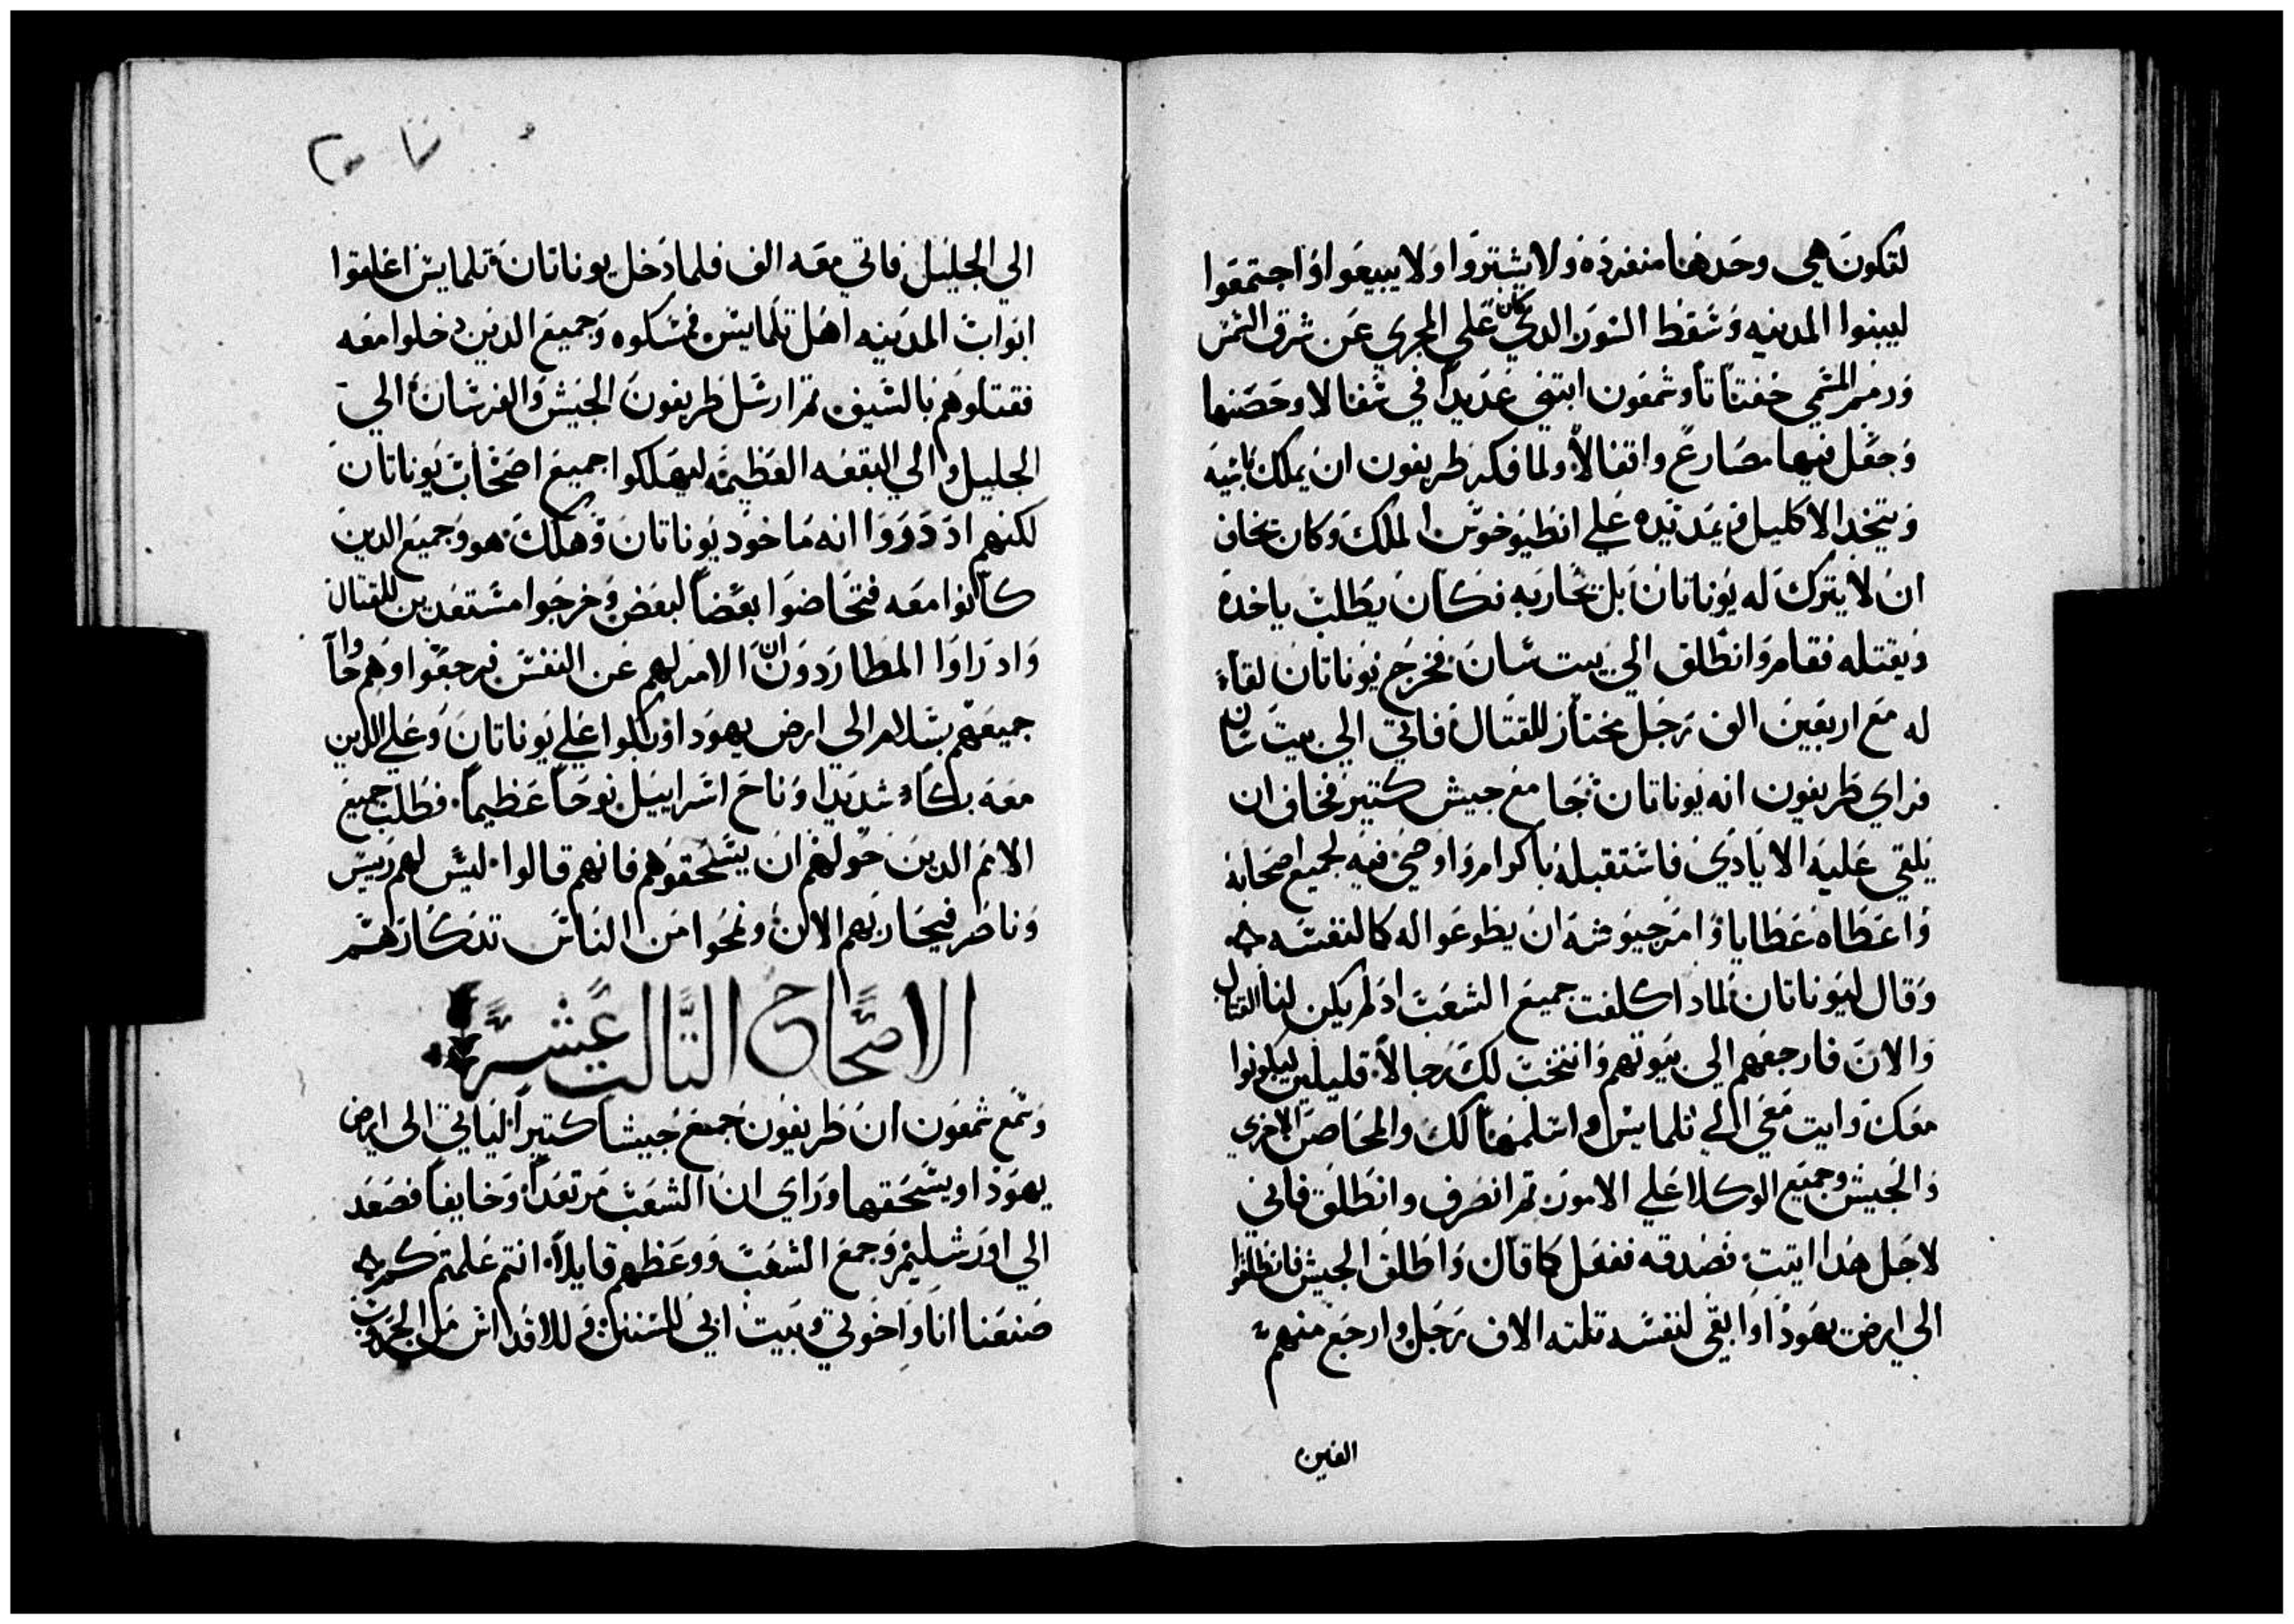 لتكون هي وحدها منفرده ولا يشتروا ولا يبيعوا واجتمعوا
ليبنوا المدينه وسقط السور الدي كان علي المجري عن شرق الشمس
ورمم المسمي خفتاتا وشمعون ابتني عديدا في سفالا وحصنها
وجعل فيها مصارع واقفالا ولما فكر طريفون ان يملك باسيه
ويتخد الاكليل ويمد يده علي انطيوخوس الملك وكان يخاف
ان لا يترك له يوناتان بل يحاربه فكان يطلب ياخده
ويقتله فقام وانطلق الي بيت سان فخرج يوناتان لقاء
له مع اربعين الف رجل مختار للقتال فاتي الي بيت سان
فراي طريفون انه يوناتان جا مع جيش كتير فخاف ان
يلقي عليه الايادي فاستقبله باكرام واوصي فيه لجميع اصحابه
واعطاه عطايا وامر جيوشه ان يطوعوا له كالنفسه
وقال ليوناتان لمادا كلفت جميع الشعب اد لم يكن لنا القتال
والان فارجعهم الي بيوتهم وانتخب لك رجالا قليلين ليكونوا
معك وايت معي الي تلمايس واسلمها لك والمحاصن الاخري
والجيش وجميع الوكلا علي الامور تم انصرف وانطلق فاني
لاجل هدا اتيت فصدقه ففعل كما قال واطلق الجيش فانطلقوا
الي ارض يهودا وابقي لنفسه تلته الاف رجل وارجع منهم
الفين
الي الجليل فاتي معه الف فلما دخل يوناتان تلمايس اغلقوا
ابواب المدينه اهل تلمايس فمسكوه وجميع الدين دخلوا معه
فقتلوهم بالسيف تم ارسل طريفون الجيش والفرسان الي
الجليل والي البقعه العظيمه ليهلكوا جميع اصحاب يوناتان
لكنهم اد دروا انه ماخود يوناتان وهلك هو وجميع الدين
كانوا معه فتحاضوا بعضا لبعض وخرجوا مستعدين للقتال
واد راوا المطاردون ان الامر لهم عن النفس فرجعوا وهم جاوا
جميعهم بسلام الي ارض يهودا وبكوا علي يوناتان وعلي الدين
معه بكاء شديدا وناح اسراييل نوحا عظيما فطلب جميع
الامم الدين حولهم ان يسحقوهم فانهم قالوا ليس لهم رييس
وناصر فيحاربهم الان ونمحوا من الناس تدكارهم
الاصحاح التالت عشر
وسمع شمعون ان طريفون جمع جيشا كتيرا لياتي الي ارض
يهودا ويسحقها وراي ان الشعب مرتعدا وخايفا فصعد
الي اورشليم وجمع الشعب ووعظهم قايلا انتم علمتم كم
صنعنا انا واخوتي وبيت ابي للسنن وللاقداس من الحروب